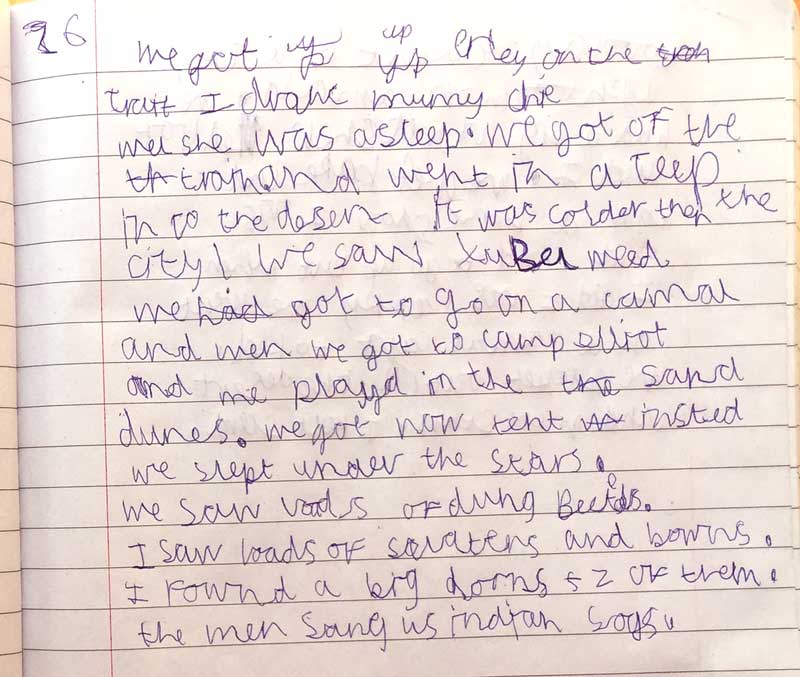 26
up
we got up up erley on the
trait I drank mummy die
wei she was asleep. we got of the
trainand went in a Jeep
in to the desert It was colder then the
city! we saw
we had got to go on a camal
and wen we got to camp elliot
and me playd in the the sand
dunes. we got now tent insted
we slept under the stars.
we saw loads of dung Beetels.
I saw loads of sceletens and bowns.
I fownd a big horns + 2 of them.
the men sang us indian sogs.